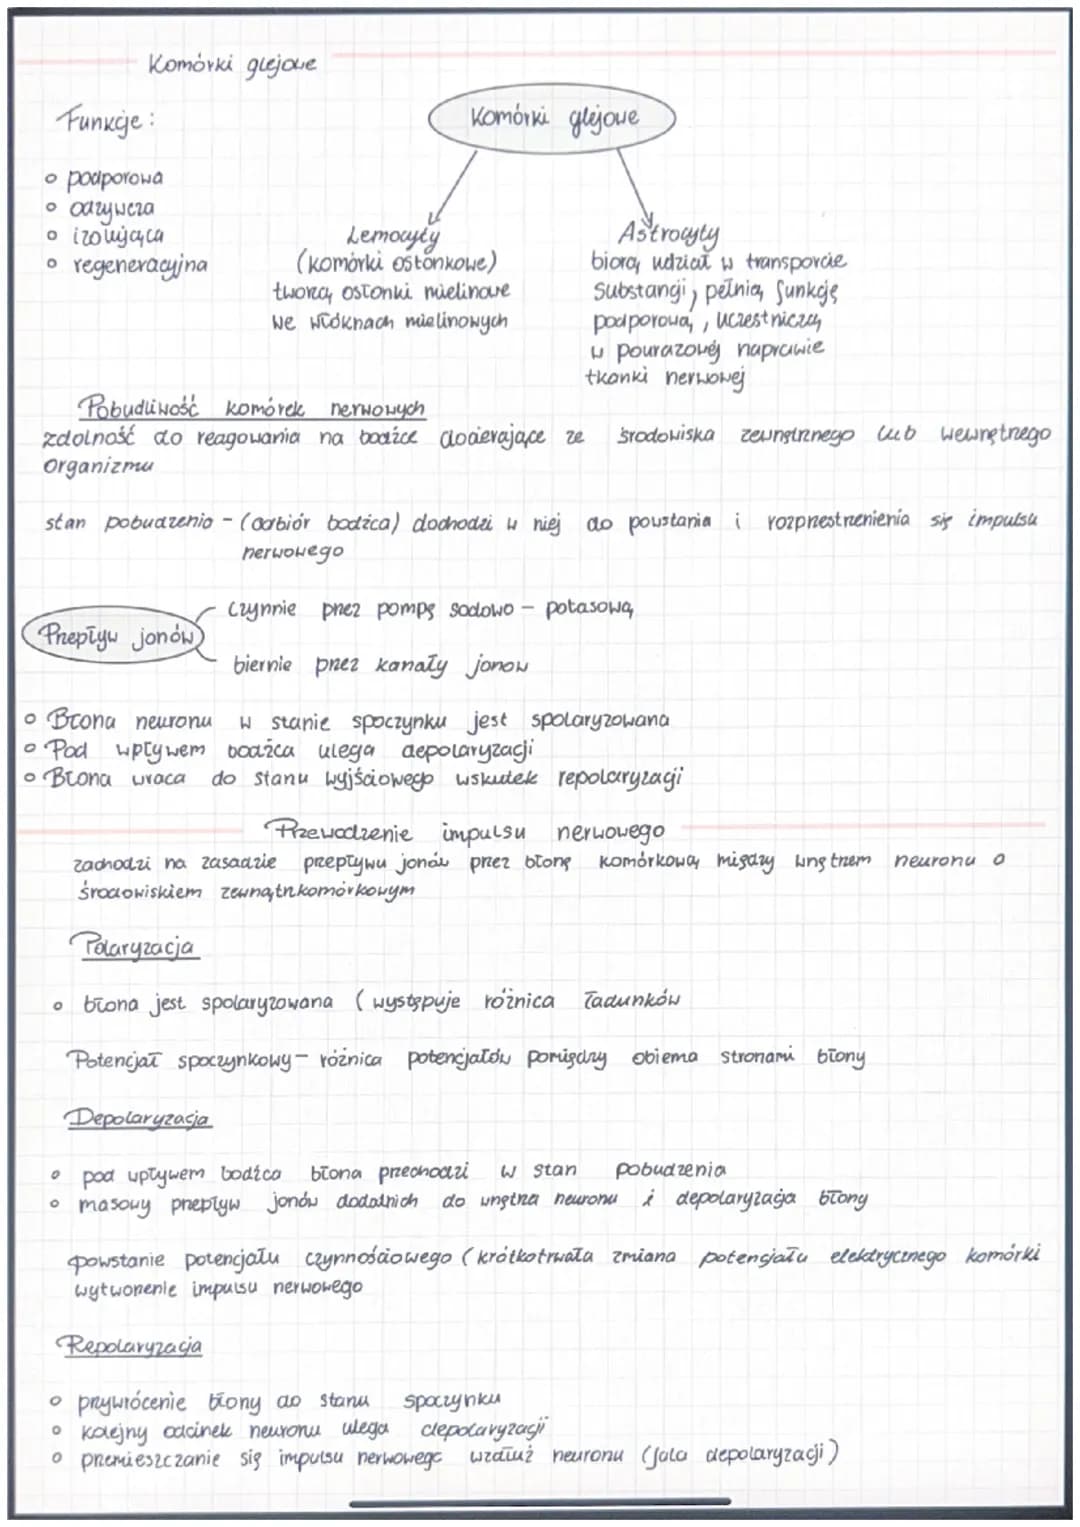 Komórki glejowe
Komórki glejowe
Funkcje:
o podporowa
o odżywcza
o izolująca
o regeneracyjna
Lemocyty
(komórki osłonkowe)
tworzą osłonki mielinowe
we włóknach mielinowych
Astrocyty
biorą udział w transporcie
substancji, pełnią funkcję
podporową, uczestniczą
w pourazowej naprawie
tkanki nerwowej
Pobudliwość komórek nerwowych
zdolność do reagowania na bodźce docierające ze środowiska zewnętrznego lub wewnętrznego
organizmu
stan pobudzenia - (odbiór bodźca) dochodzi w niej do powstania i rozprzestrzenienia się impulsu
nerwowego
Przepływ jonów
czynnie przez pompę sodowo - potasową
biernie przez kanały jonow
o Błona neuronu w stanie spoczynku jest spolaryzowana
o Pod wpływem bodźca ulega depolaryzacji
o Błona wraca do stanu wyjściowego wskutek repolaryzacji
Przewodzenie impulsu nerwowego
zachodzi na zasadzie przepływu jonów przez błonę komórkową między wnętrzem neuronu a
środowiskiem zewnątrzkomórkowym
Polaryzacja
o błona jest spolaryzowana (występuje różnica ładunków
Potencjał spoczynkowy - różnica potencjałów pomiędzy obiema stronami błony
Depolaryzacja
o pod wpływem bodźca błona przechodzi w stan pobudzenia
o masowy przepływ jonów dodatnich do wnętrza neuronu i depolaryzacja błony
powstanie potencjału czynnościowego (krótkotrwała zmiana potencjału elektrycznego komórki
wytworzenie impulsu nerwowego
Repolaryzacja
o przywrócenie błony do stanu spoczynku
o kolejny odcinek neuronu ulega depolaryzacji
o przemieszczanie się impulsu nerwowego wzdłuż neuronu (fala depolaryzacji)